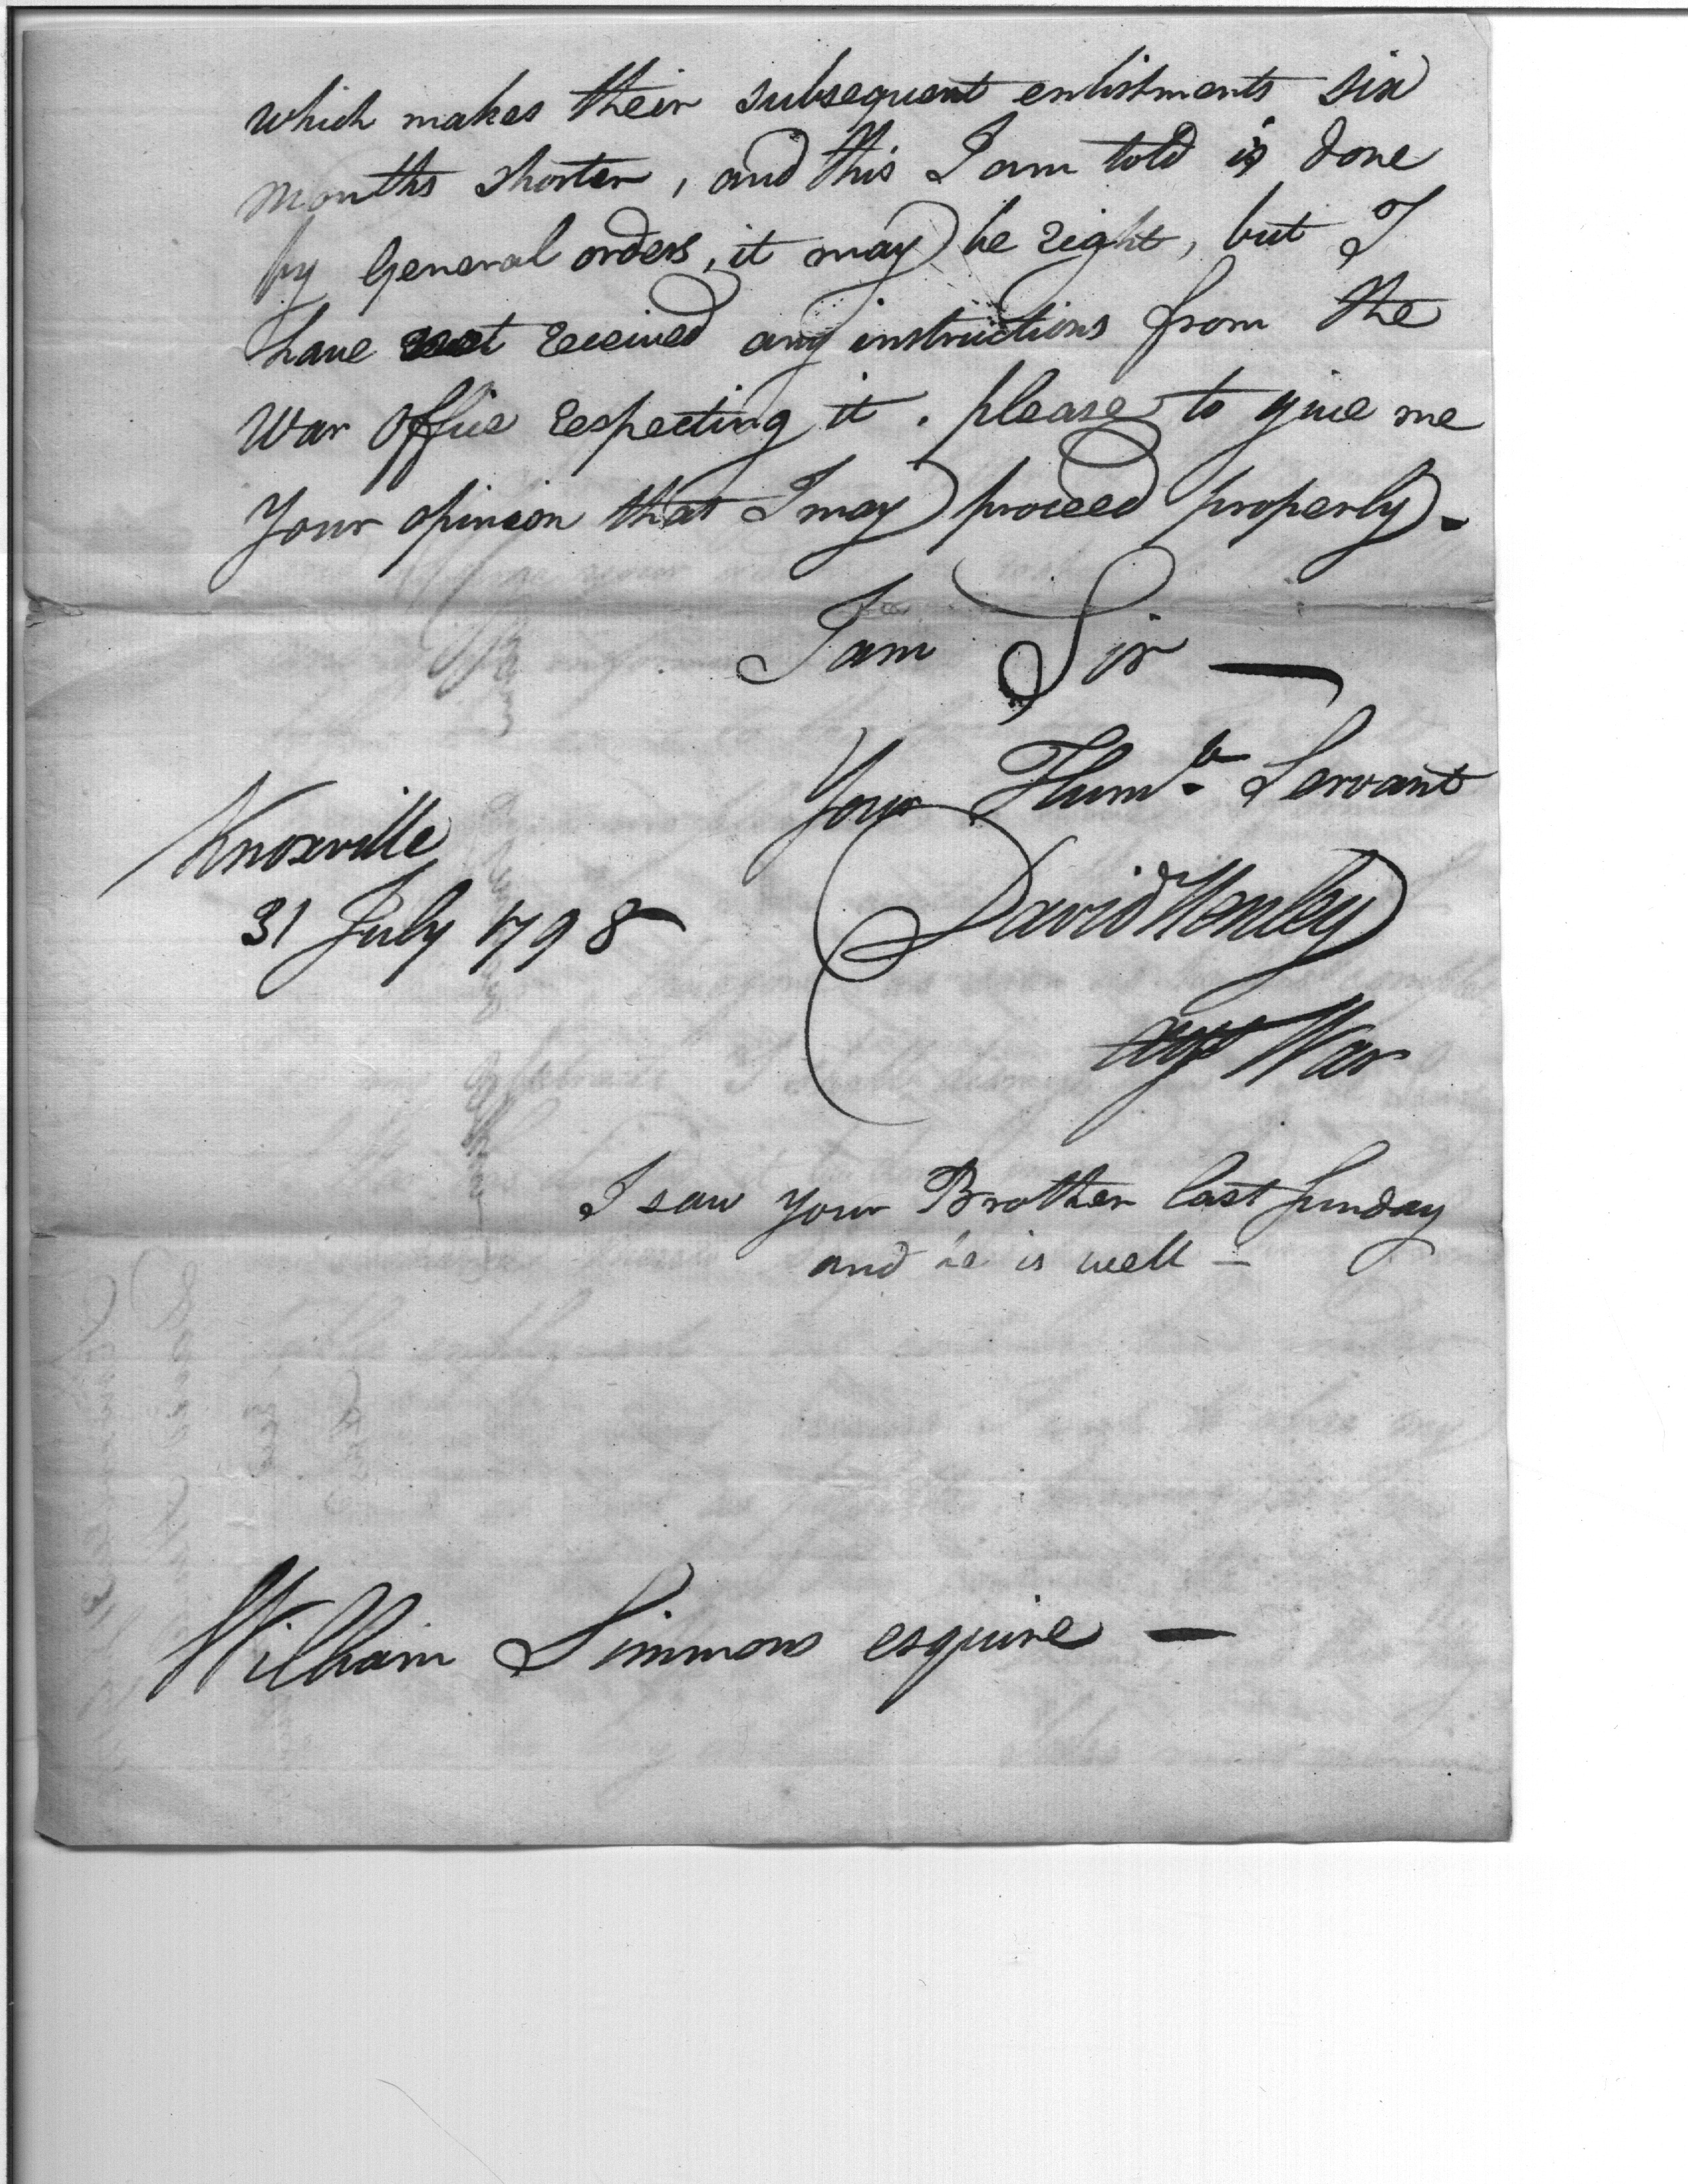 which makes their subsequent enlistments six
months shorter, and this I am told is done
by General orders, it may be right, but I
have not received any instructions from the
War Office respecting it. please to give me
Your opinion that I may proceed properly.
I am Sir —
Your Humb. Servant
David Henley
agt War
Knoxville
31 July 1798
I saw your Brother last Sunday
and he is well —
William Simmons esquire —